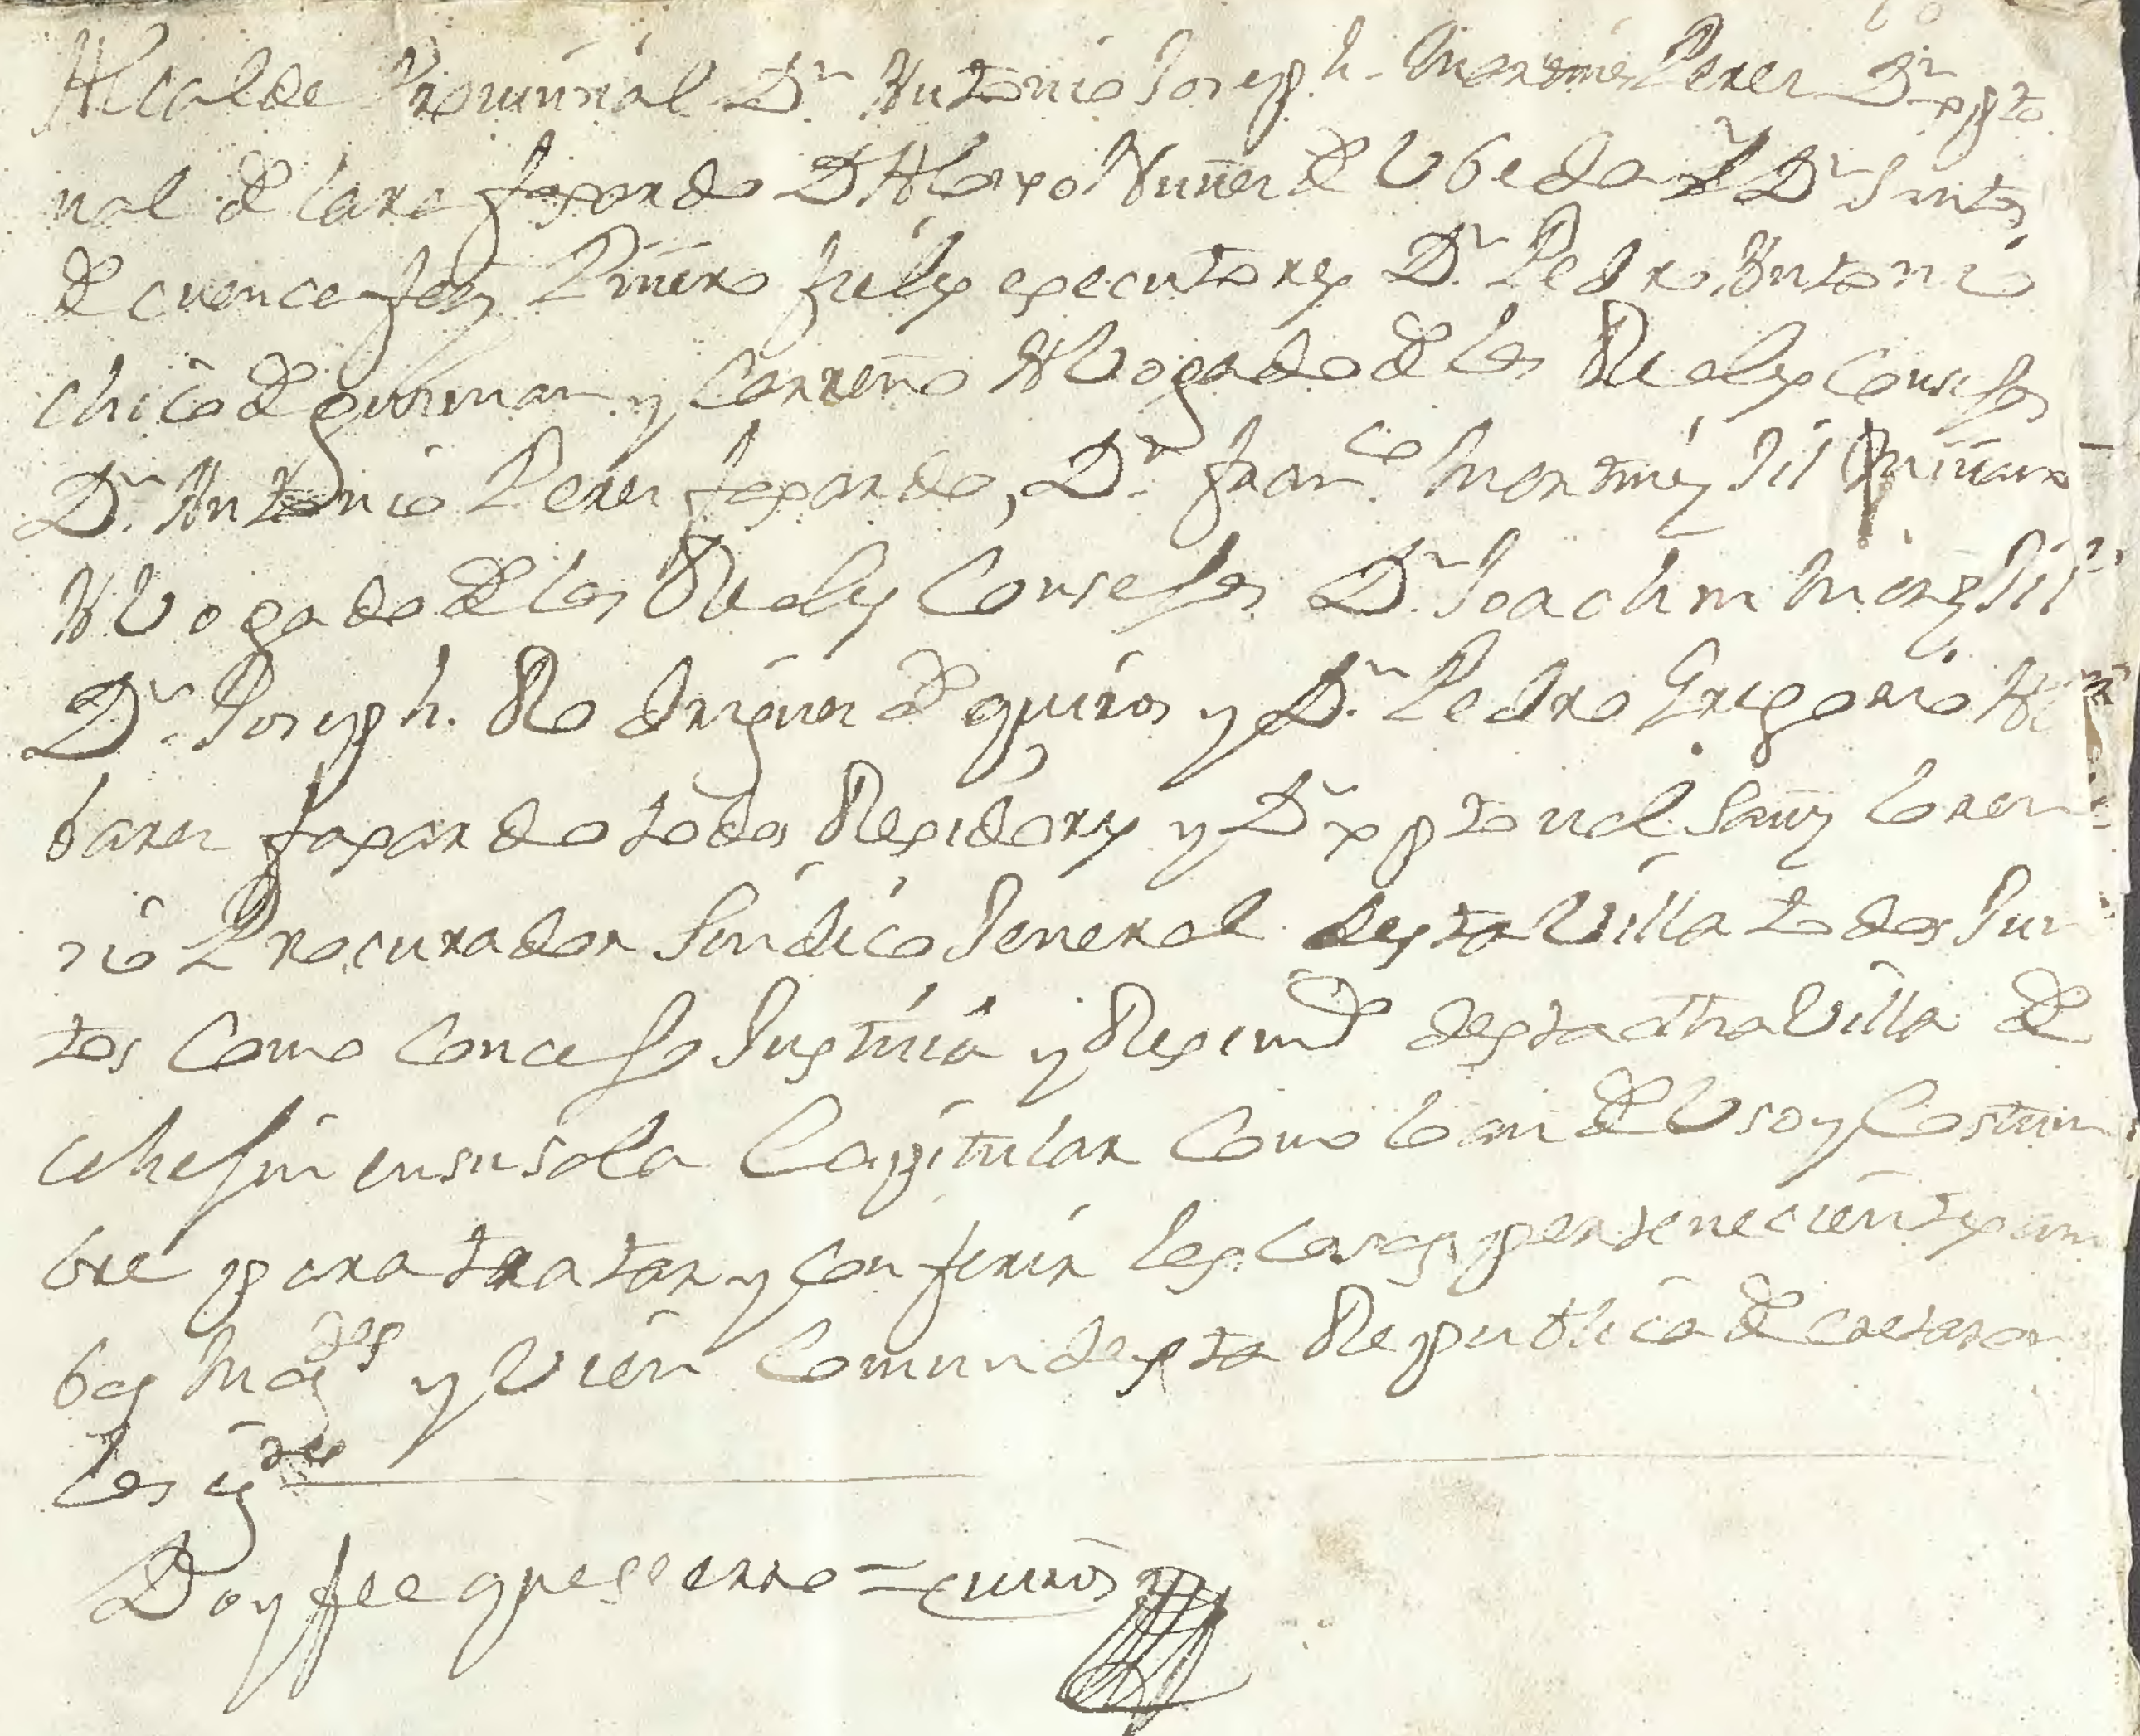 Alcalde Provinzial Dn Antonio Joseph Martinez Perez Dn xpto
ual de lara faxardo Dn Alonso Nuñez de Ubeda y Dn Gines
de cuenca Piñero fieles executores Dn Pedro Antonio
chico de guzman y Carreño Abogado de los Reales Consejos
Dn Antonio Perez faxardo, Dn Franco Martinez Gil
Abogado de los Reales Consejos Dn Joachin Gil
Dn Joseph Rodriguez de quiros y Dn Pedro Gregorio Al
barez faxardo todos Rexidores y Dn xptoual Sanz Loren
zio Procurador Sindico General desta Villa todos Jun
tos Como Concejo Justicia y Reximto desta dha Villa de
cehejin en su sala Capitular Como lo an de Uso y Costum
bre para tratar y Conferir las Cosas pertenecientes a am
bas Magdes y Vien Comun desta Republica decretaron
lo sigte
Doy fee que se zerro = quiros